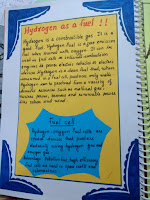 Hydrogen as a fuel !!
Hydrogen is a combustible gas. It is a
good fuel. Hydrogen fuel is a zero emission
fuel when burned with oxygen. It can be
used in fuel cells or internal combustion
engines to power electric vehicles or electric
devices. Hydrogen is a clean fuel that, when
used in a fuel cell, produces only water.
Hydrogen can be produced from a variety of
domestic resources such as natural gas,
nuclear power, biomass and renewable power
like solar and wind.
Fuel cell
Hydrogen-oxygen fuel cells are
devices that produces
electricity using hydrogen gas and
oxygen gas.
Advantage: Pollution less, high efficiency
fuel cells are used in space crafts and
submarines